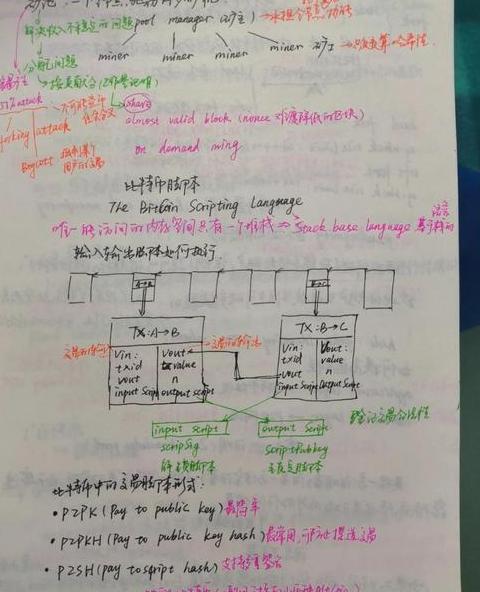 解决收入不稳定的问题 pool manager (矿主) → 承担全节点功能
miner miner miner miner 矿工 → 只负责算哈希值
分配问题
→ 按贡献分 (工作量证明)
share
51% attack
almost valid block (nonce 难度降低的区块)
forking attack
Boycott
on demand mining
比特币脚本
The Bitcoin Scripting Language
唯一能访问的内存空间只有一个堆栈 ⇒ Stack base language 基于栈的语言
输入输出脚本如何执行
A→B B→C
TX: A→B
Vin: Vout:
txid value
vout n
input Script output script
TX: B→C
Vin: Vout:
txid value
vout n
input Script output Script
验证交易合法性
input script output script
scripSig scriptPubkey
解锁脚本 锁定脚本
比特币中的交易脚本形式:
• P2PK (Pay to public key) 最简单
• P2PKH (Pay to public key hash) 最常用
• P2SH (pay to script hash) 支持多重签名